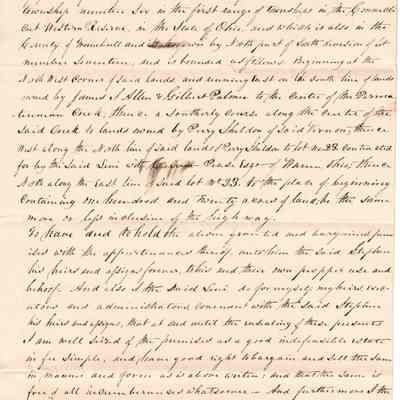 township number Six in the first range of townships in the Connecti
cut Western Reserve, in the State of Ohio, and which is also in the
County of Trumbull and known by North part of South division of lot
number Seventeen, and is bounded as follows Beginning at the
North West corner of said lands and running East on the South line of lands
owned by James S Allen & Gilbert Palmer to the center of the
Creek, thence a Southerly course along the center of the
Said Creek to lands owned by Perry Sheldon of Said Vernon, thence
West along the North line of Said lands of Perry Sheldon to lot No 23 contracted
for by the Said Levi with Pease Esqr of Warren Ohio, thence
North along the East line of Said lot No 23. to the place of beginning
Containing one hundred and twenty acres of land, be the same
more or less inclusive of the high way.
To have and to hold the above granted and bargained prem
ises with the appurtenances thereof, unto him the said Stephen
his heirs and assigns forever, to his and their own propper use and
behoof. And also I the Said Levi do for myself, my heirs execu
ators and administrators covenant with the Said Stephen
his heirs and assigns, that at and until the ensealing of these presents
I am well Seized of the premises as a good indefeasible estate
in fee Simple, and have good right to bargain and Sell the Same
in manner and form as is above writen; and that the Same is
free of all incumbrances whatsoever — And furthermore I the